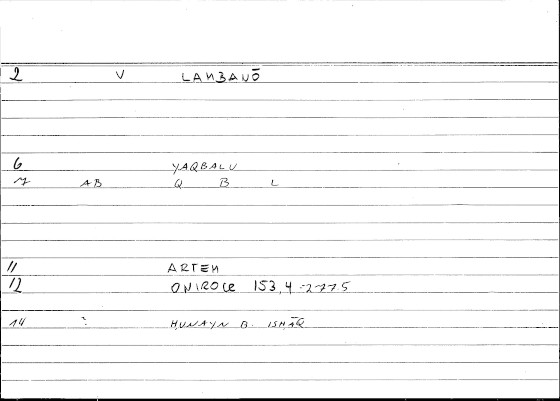 2 V LAMBANŌ
6 YAQBALU
7 AB Q B L
11 ARTEM
12 ONIROCR 153,4
14 HUNAYN B. ISHĀQ